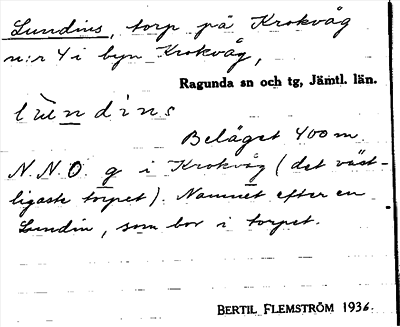 Lundins, torp på Krokvåg
n:r 4 i byn Krokvåg,
Ragunda sn och tg, Jämtl. län.
lundins
Beläget 400 m.
N.N.O. g i Krokvåg (det väst-
ligaste torpet). Namnet efter en
Lundin, som bor i torpet.
BERTIL FLEMSTRÖM 1936.